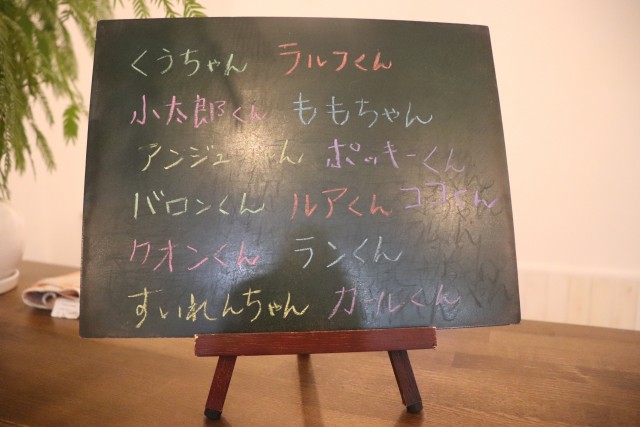 くうちゃん ラルフくん
小太郎くん ももちゃん
アンジュ ん ポッキーくん
バロンくん ルアくん ココくん
クオンくん ランくん
すいれんちゃん カールくん